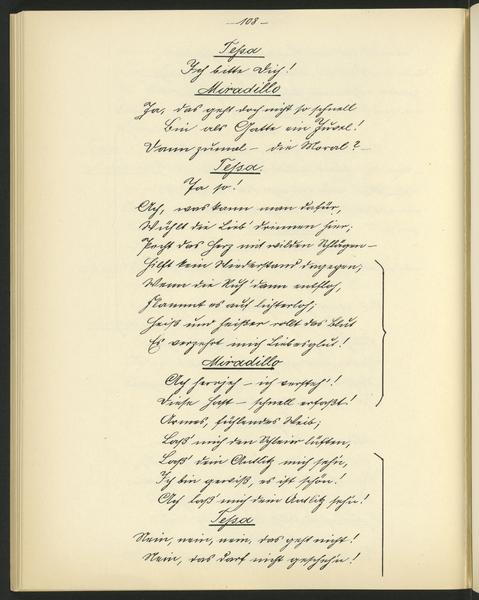 – 108 –
Tessa
Ich bitte Dich!
Miradillo
Ja, das geht doch nicht so schnell
Bin als Gatte ein Juwel!
Dann zumal – die Moral? –
Tessa.
Ja so!
Ach, was kann man dafür,
Wühlt die Lieb' drinnen hier;
Pocht das Herz mit wilden Schlägen –
Hilft kein Widerstand dagegen;
Wenn die Ruh' dann entfloh,
Flammt es auf lichterloh;
Heiß und heißer rollt das Blut
Es verzehrt mich Liebesglut!
Miradillo
Ach herrjeh – ich versteh'!
Diese Hast – schnell erfaßt!
Armes, fühlendes Weib;
Laß' mich den Schleier lüften,
Laß' dein Antlitz mich seh'n,
Ich bin gewiß, es ist schön!
Ach laß' mich dein Antlitz seh'n!
Tessa
Nein, nein, nein, das geht nicht!
Nein, das darf nicht gescheh'n!